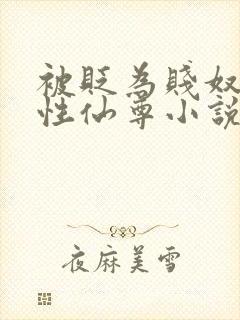 被貶為賤奴
性仙尊小說
夜麻美雪